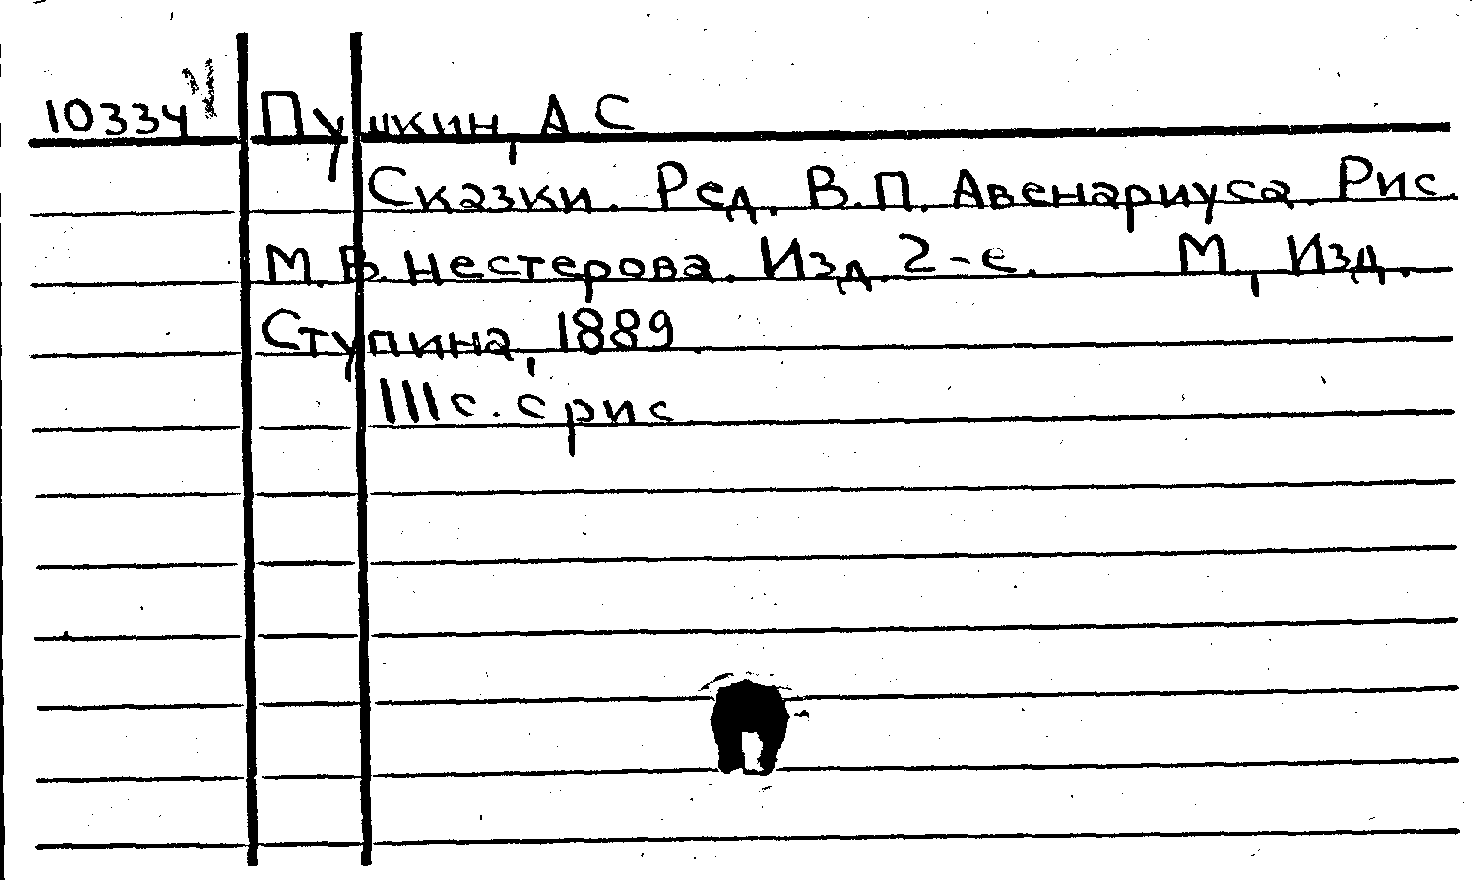 10334 Пушкин, А С
Сказки. Ред. В.П. Авенариуса. Рис.
М.В. Нестерова. Изд. 2-е. М., Изд.
Ступина, 1889
111 с. с рис